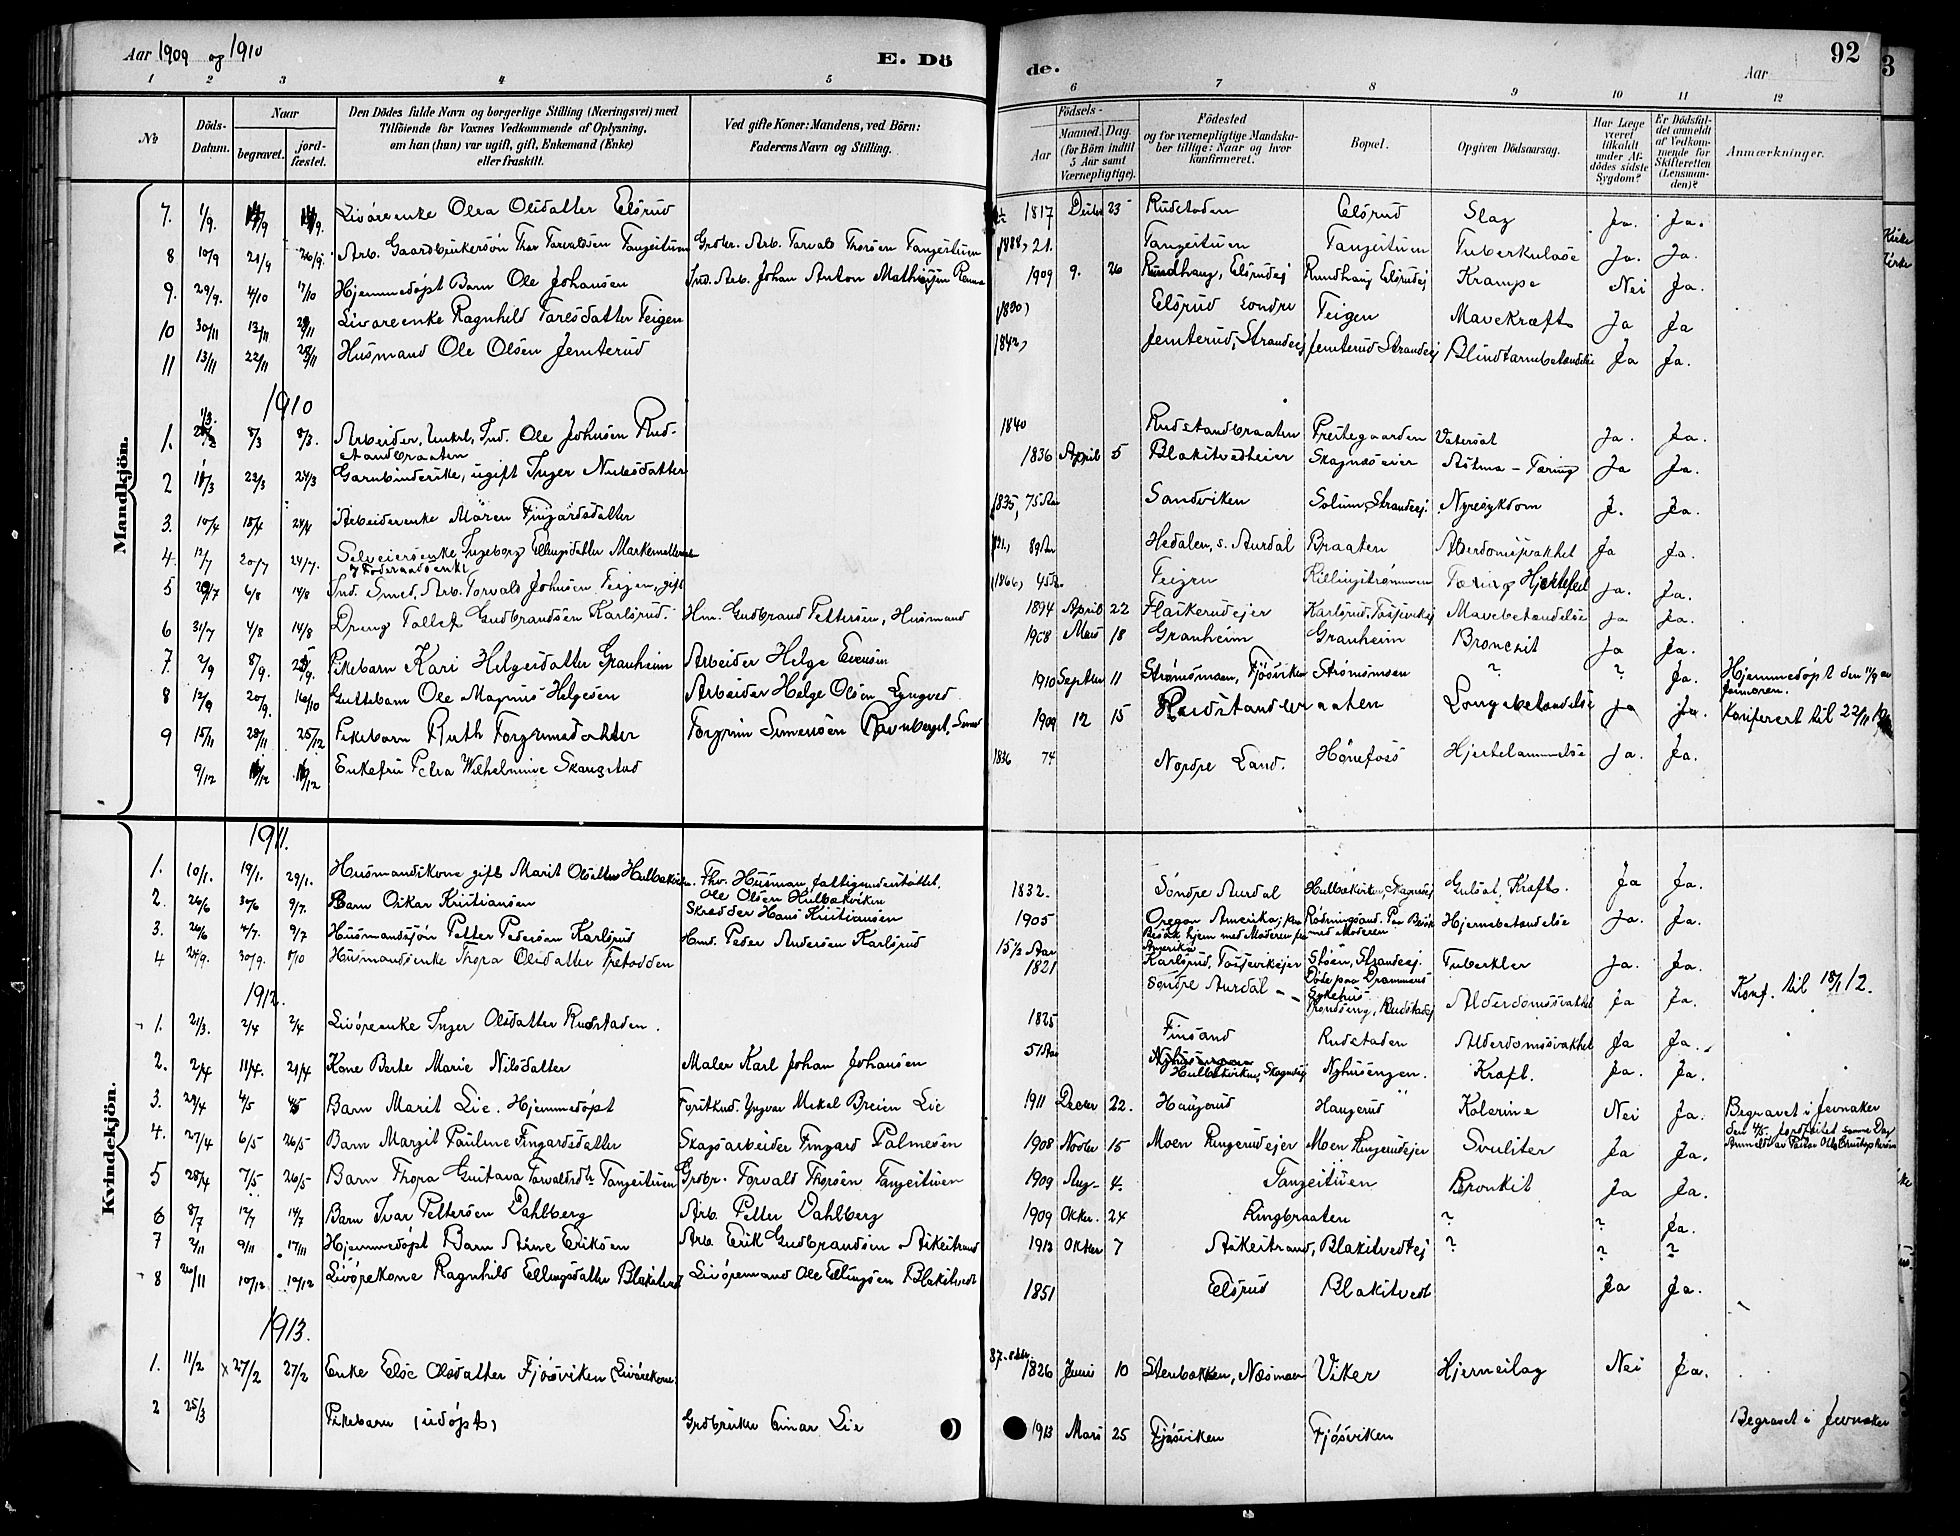 Aar 1909 og 1910
E. Dö
de.
Aar
92
3
1 2 3 4 5
6 7 8 9 10 11 12
No
Döds-Datum.
Naar
begravet.
jord-fæstet.
Den Dödes fulde Navn og borgerlige Stilling (Næringsvei) med
Tilföiende for Voxnes Vedkommende af Oplysning,
om han (hun) var ugift, gift, Enkemand (Enke)
eller fraskilt.
Ved gifte Koner: Mandens, ved Börn:
Faderens Navn og Stilling.
Födsels-
Aar
Maaned. Dag.
(for Börn indtil
5 Aar samt
Værnepligtige).
Födested
og for værnepligtige Mandska-
ber tillige: Naar og hvor
konfirmeret.
Bopæl.
Opgiven Dödsaarsag.
Har Læge
været
tilkaldt
under Af-
dödes sidste
Sygdom?
Er Dödsfal-
det anmeldt
af Vedkom-
mende for
Skifteretten
(Lensman-
den)?
Anmærkninger.
Mandkjön.
7. 1/9. Livöreenke Olea Olsdatter Elsrud 1817 23 Rudstaden Elsrud Slag Ja. Ja.
8 10/9 21/9 26/9. Arb. Gaardbrukersön Thor Torvaldsen Tangeituen Grdbr. Arb. Torvald Thorsen Tangeituen 1888, 21. Tangeituen Tangeituen Tuberkulose Ja. Ja.
9. 29/9. 4/10 17/10 Hjemmedöpt Barn Ole Johansen Ind. Arb. Johan Anton Mathisen 1909 9. 26 Rundhaug, Elsrudej Rundhaug Elsrudej Krampe Nei Ja.
10 30/11 13/11 Livöreenke Ragnhild Toresdatter Teigen 1830, Elsrud söndre Teigen Mavekræft Ja Ja
11 13/11 22/11 28/11 Husmand Ole Olsen Jemterud 1842, Jemterud, Strandeej Jemterud Strandeej Blindtarmbetændelse Ja Ja.
1910
1. 1/3. 8/3 8/3. Arbeider, Unkrl, Ind. Ole Johnsen Rud-
standbraaten 1840 Rudstandbraaten Prestegaarden Vatersot Ja. Ja.
2 18/3 22/3 24/3 Garnbinderske, ugift Inger Nilsdatter 1836 April 5 Blakstvedheier Skagnæseier Astma - Tæring Ja Ja.
3. 10/4 18/4 24/4 Arbeiderenke Maren Fingarsdatter 1835, 75 Aar Sandviken Solum, Strandeej. Nyresykdom J. Ja.
4. 12/7 20/7 24/7. Selveiersenke Ingeborg Ellingsdatter 89 Aar Hedalen, s. Aurdal Braaten Alderdomssvakhet Ja Ja.
5 6/8 14/8 Ind. Smed, Arb. Torvald Johnsen Teigen, gift (1866) 45 Teigen Killingstrømmen Tæring Hjertefeil Ja. Ja.
6 31/7 4/8 14/8 Dreng Tollef Gudbrandsen Karlsrud. Hm. Gudbrand Pettersen, Husmand 1894 April 22 Flaskerudejer Karlsrud, Tossevikej Mavebetændelse Ja Ja.
7. 2/9 8/9. 25/9. Pikebarn Kari Helgesdatter Granheim Arbeider Helge Evensen 1908 Mars 18 Granheim Granheim Bronchit Ja Ja.
8 12/9 20/9. 16/10 Guttebarn Ole Magnus Helgesen Arbeider Helge Olsen Lyngved 1910 Septber 11 Strømsmoen, Fjösviken Strømsmoen ? ? Ja. Hjemmedöpt den 11/9 av
Jormoren.
9 15/11 28/11 25/12 Pikebarn Ruth Torgrimsdatter Torgrim Simensen Ravnberget, Smed 1909 12 15 Rudstandbraaten Lungebetændelse Ja Ja. Konferert til 22/11
9/12 Enkefru Petra Wilhelmine Skangstad 1836 74 Nordre Land. Hønefoss Hjertelammelse Ja. Ja.
Kvindekjön.
1911.
1. 10/1. 19/1. 29/1. Husmandskone gift Marit Olsdatter Hulbakviken. Fhv. Husman, fattigunderstøttet,
Ole Olsen Hulbakviken 1832. Søndre Aurdal Hulbakviken, Skagnæs Gulsot, Kræft. Ja Ja.
2. 26/6 30/6 9/7. Barn Oskar Kristiansen Skrædder Hans Kristiansen 1905 Oregon Amerika, paa
Besök hjem med Moderen fra
Amerika Rödningsand. Paa Besök
med Moderen Hjernebetændelse Ja. Ja.
3. 26/6 4/7. 9/7 Husmandssøn Petter Pedersen Karlsrud Hmd. Peder Andersen Karlsrud 15½ Aar Karlsrud, Tossevikejer Støen, Strandeej.
Döde paa Drammens
Sykehus Tuberkler Ja. Ja.
4 24/9. 30/9. 8/10 Husmandsenke Thora Olsdatter 1821 Søndre Aurdal Rudstadej Alderdomssvakhet Ja Ja. Konf. til 18/1 12.
1912.
1. 21/3. 2/4 2/4 Livöreenke Inger Olsdatter Rudstaden. 1825 Finsand Rudstaden Alderdomssvakhet Ja Ja.
2. 2/4 11/4. 21/4 Kone Berte Marie Nilsdatter Maler Karl Johan Johansen 51 Aar Hulbakviken, Skagnæsej Nyhusengen. Kræft. Ja. Ja.
3. 29/4 4/5 4/5 Barn Marit Lie. Hjemmedöpt Forstkand. Yngvar Mikal Breien Lie 1911 Decber 22. Haugerud Haugerud Kolerine Nei Ja. Begravet i Jevnaker
den 4/5. jordfæstet samme Dag
4. 27/4 6/5 26/5 Barn Margit Pauline Fingarsdatter Skogsarbeider Fingard Palmesen 1908 Novber 15 Moen Ringerudejer Moen Ringerudejer Svulster Ja Ja.
5 28/4 7/5 26/5 Barn Thora Gustava Torvaldsdtr Tangeituen Grdbr. Torvald Thorsen Tangeituen 1909 Aug- 4. Tangeituen Bronkit Ja Ja.
6 8/7 12/7 14/7 Barn Ivar Pettersen Dahlberg Arb. Petter Dahlberg 1909 Oktbr. 24 Ringbraaten ? ? Ja.
7 2/11 9/11 17/11 Hjemmedöpt Barn Arne Eriksen Arb. Erik Gudbrandsen Askestrand 1912 Oktber 7 Askestrand, Blakstvedtej ? ? ?
8 26/11 10/12 10/12 Livörekone Ragnhild Ellingsdatter Blakstvedt Livöremand Ole Ellingsen Blakstvedt 1851 Elsrud Blakstvedt Ja Ja.
1913.
1. 11/2 x 27/2 27/2 Enke Else Olsdatter Fjösviken (Livörekone. 1826 Juni 10 Stenbakken, Næsmoen Viker Hjerneslag Nei Ja.
2 25/3 Pikebarn (udöpt) Grdbruker Einar Lie 1913 Mars 25 Fjösviken Fjösviken Begravet i Jevnaker